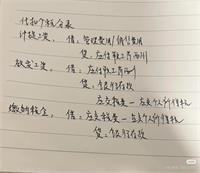 代扣个税分录
计提工资,借:管理费用/销售费用
贷:应付职工薪酬
发放工资,借:应付职工薪酬
贷:银行存款
应交税费—应交个人所得税
缴纳税金,借:应交税费—应交个人所得税
贷:银行存款